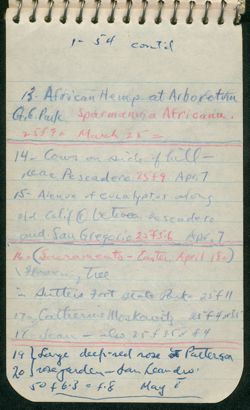 1 - 54 cont'd
13 - African Hemp at Arboretum
G.G. Park Sparmannia Africana.
25 f 9 - March 25 -
14 - Cows on side of hill -
near Pescadero 25 f 9 Apr. 7
15 - Avenue of eucalyptus along
old Calif @ between Pescadero
and San Gregorio 25 f 5.6 Apr. 7
16 - (Sacramento - Easter April 18)
Flowering Tree
in Sutters Fort State Park - 25 f 11
17 - Catherine Moskowitz - 25 f
18 - Jean - also 25 f
19 } Large deep-red rose Patterson
20 } rosegarden - San Leandro
50 f 6.3 = f.8 May